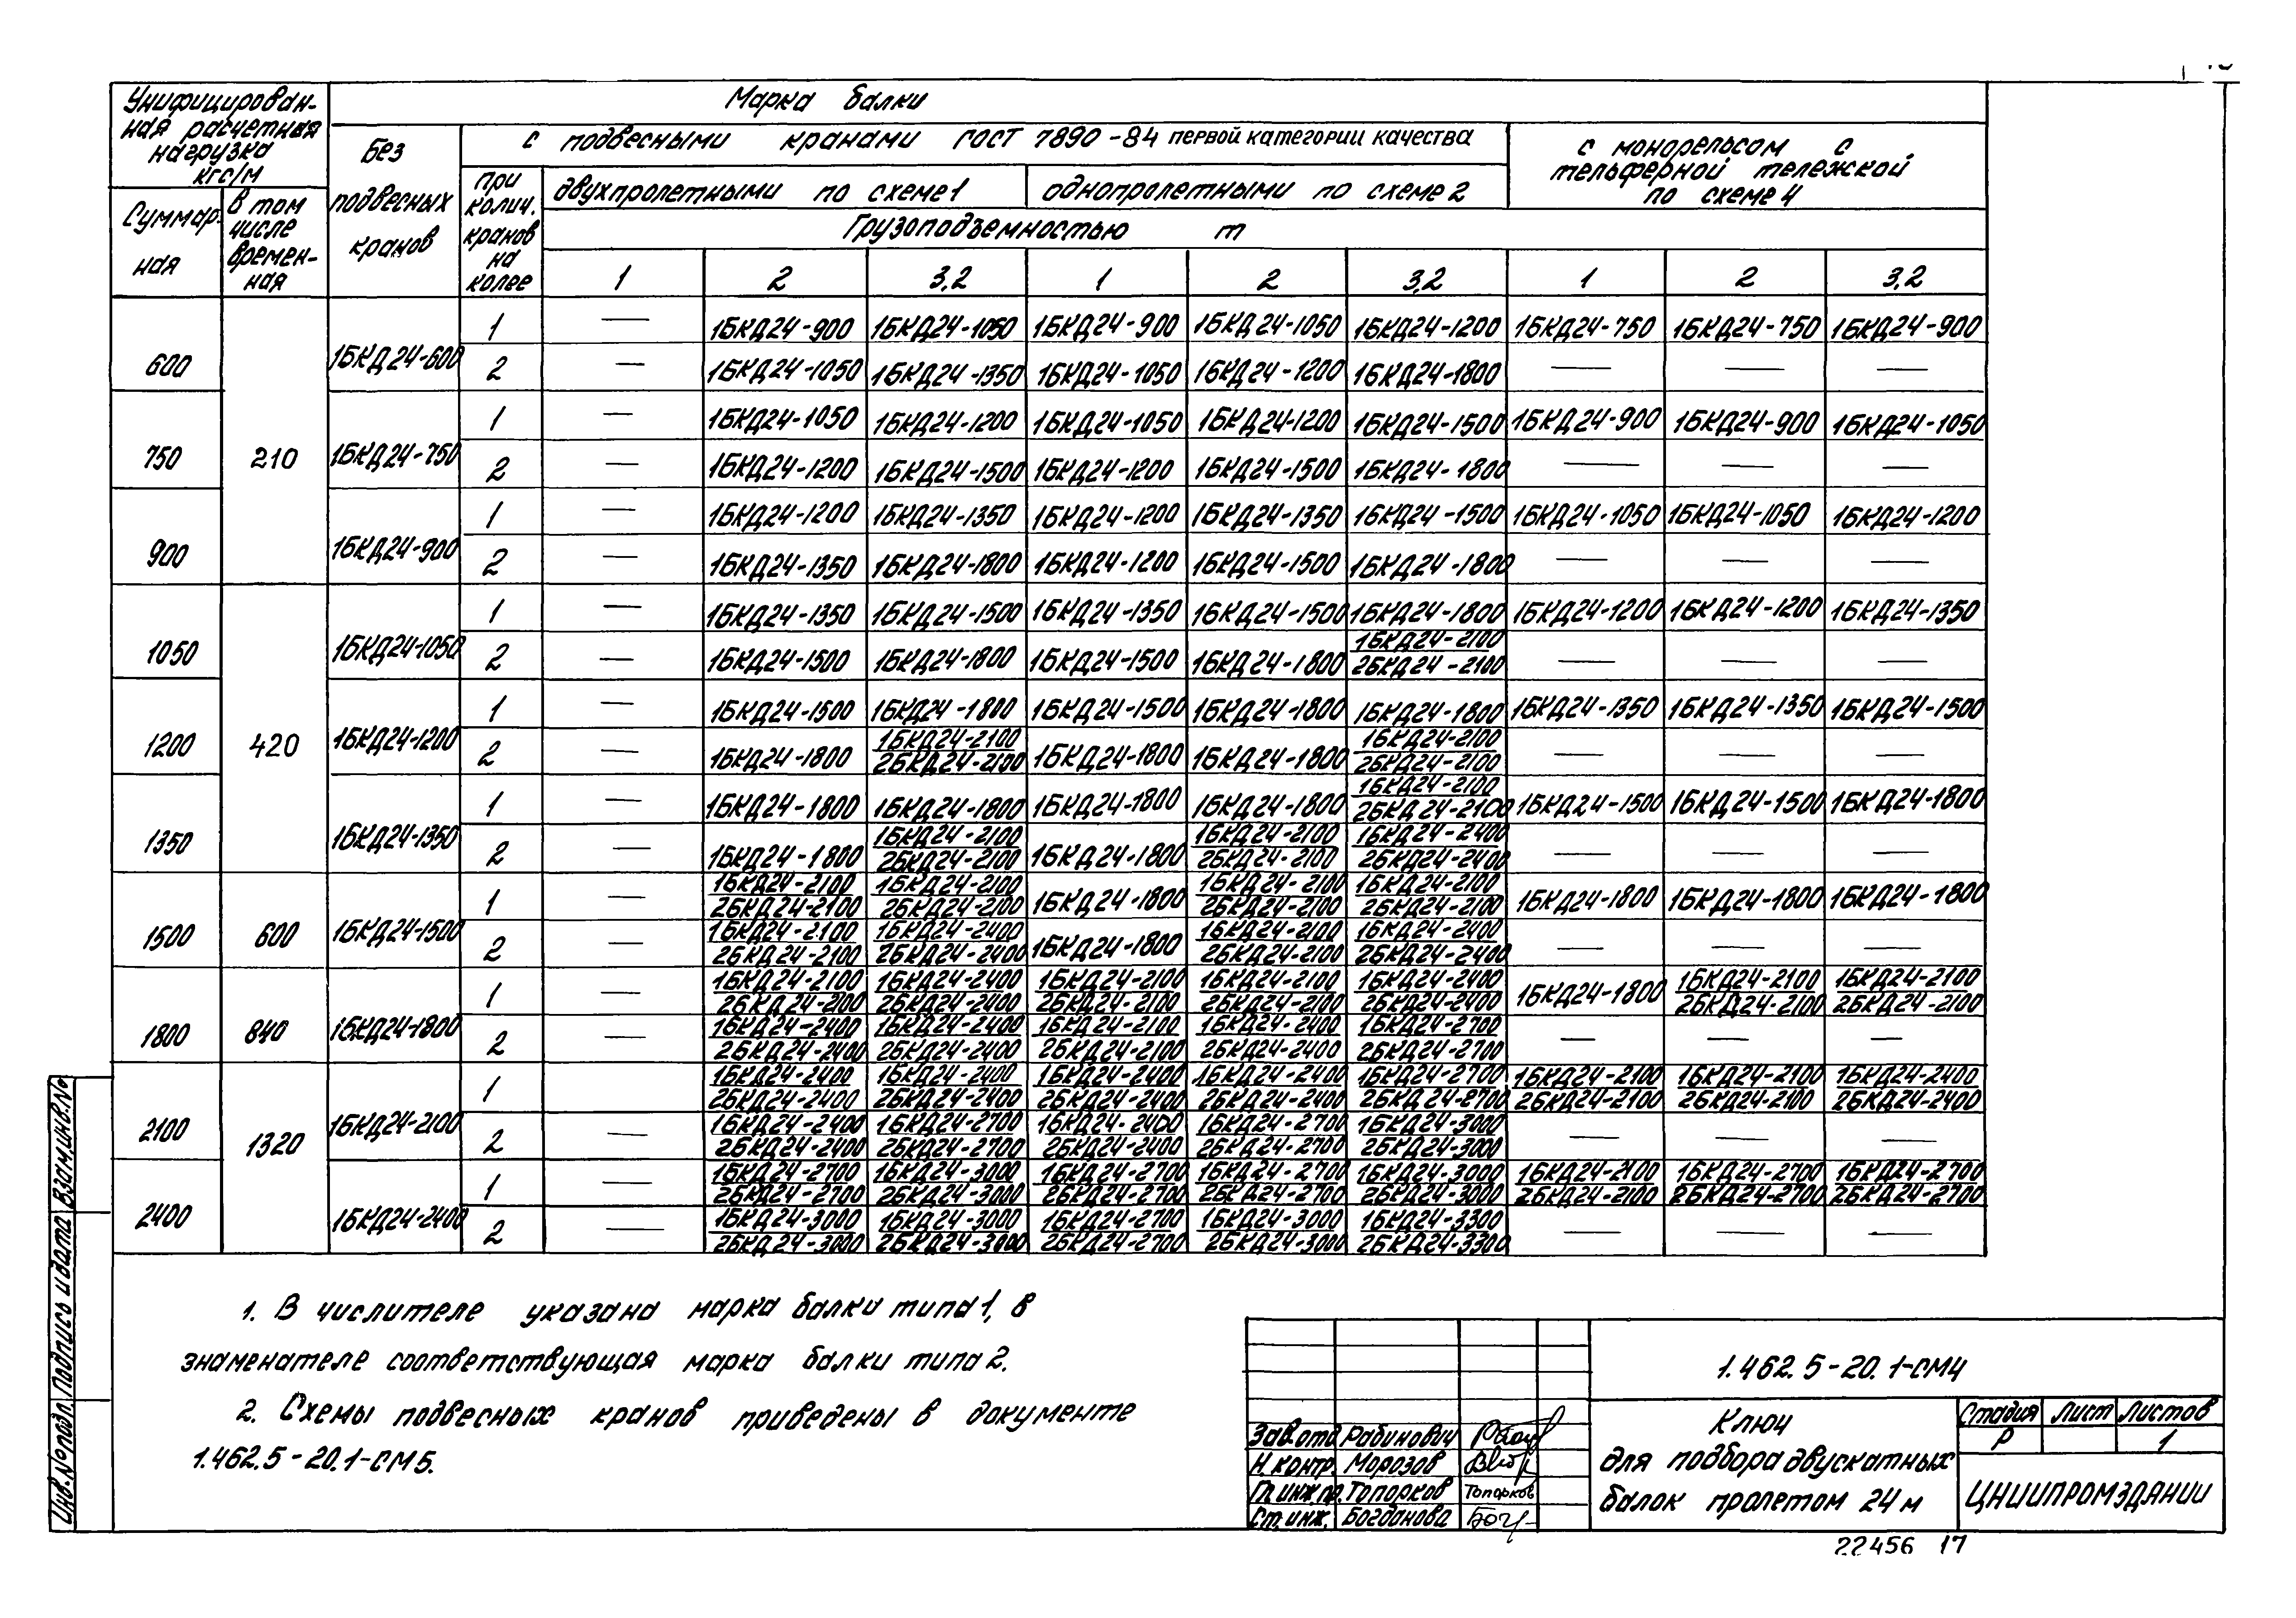 Унифицирован-
ная расчетная
нагрузка
кгс/м
Марка балки
Без
подвесных
кранов
с подвесными кранами ГОСТ 7890-84 первой категории качества
с монорельсом с
тельферной тележкой
по схеме 4
Суммар-
ная
В том
числе
времен-
ная
При
колич.
кранов
на
колее
двухпролетными по схеме 1
однопролетными по схеме 2
Грузоподъемностью т
1 2 3,2 1 2 3,2 1 2 3,2
600 210 1БКД24-600
1 — 1БКД24-900 1БКД24-1050 1БКД24-900 1БКД24-1050 1БКД24-1200 1БКД24-750 1БКД24-750 1БКД24-900
2 — 1БКД24-1050 1БКД24-1350 1БКД24-1050 1БКД24-1200 1БКД24-1800 — — —
750 1БКД24-750
1 — 1БКД24-1050 1БКД24-1200 1БКД24-1050 1БКД24-1200 1БКД24-1500 1БКД24-900 1БКД24-900 1БКД24-1050
2 — 1БКД24-1200 1БКД24-1500 1БКД24-1200 1БКД24-1500 1БКД24-1800 — — —
900 1БКД24-900
1 — 1БКД24-1200 1БКД24-1350 1БКД24-1200 1БКД24-1350 1БКД24-1500 1БКД24-1050 1БКД24-1050 1БКД24-1200
2 — 1БКД24-1350 1БКД24-1800 1БКД24-1200 1БКД24-1500 1БКД24-1800 — — —
1050 420 1БКД24-1050
1 — 1БКД24-1350 1БКД24-1500 1БКД24-1350 1БКД24-1500 1БКД24-1800 1БКД24-1200 1БКД24-1200 1БКД24-1350
2 — 1БКД24-1500 1БКД24-1800 1БКД24-1500 1БКД24-1800 1БКД24-2100 — — —
2БКД24-2100
1200 1БКД24-1200
1 — 1БКД24-1500 1БКД24-1800 1БКД24-1500 1БКД24-1800 1БКД24-1800 1БКД24-1350 1БКД24-1350 1БКД24-1500
2 — 1БКД24-1800 1БКД24-2100 1БКД24-1800 1БКД24-1800 1БКД24-2100 — — —
2БКД24-2100 2БКД24-2100
1350 1БКД24-1350
1 — 1БКД24-1800 1БКД24-1800 1БКД24-1800 1БКД24-1800 1БКД24-2100 1БКД24-1500 1БКД24-1500 1БКД24-1800
2БКД24-2100
2 — 1БКД24-1800 1БКД24-2100 1БКД24-1800 1БКД24-2100 1БКД24-2400 — — —
2БКД24-2100 2БКД24-2100 2БКД24-2400
1500 600 1БКД24-1500
1 — 1БКД24-2100 1БКД24-2100 1БКД24-1800 1БКД24-2100 1БКД24-2100 1БКД24-1800 1БКД24-1800 1БКД24-1800
2БКД24-2100 2БКД24-2100 2БКД24-2100 2БКД24-2100
2 — 1БКД24-2100 1БКД24-2400 1БКД24-1800 1БКД24-2100 1БКД24-2400 — — —
2БКД24-2100 2БКД24-2400 2БКД24-2100 2БКД24-2400
1800 840 1БКД24-1800
1 — 1БКД24-2100 1БКД24-2400 1БКД24-2100 1БКД24-2100 1БКД24-2400 1БКД24-1800 1БКД24-2100 1БКД24-2100
2БКД24-2100 2БКД24-2400 2БКД24-2100 2БКД24-2100 2БКД24-2400 2БКД24-2100 2БКД24-2100
2 — 1БКД24-2400 1БКД24-2400 1БКД24-2100 1БКД24-2400 1БКД24-2700 — — —
2БКД24-2400 2БКД24-2400 2БКД24-2100 2БКД24-2400 2БКД24-2700
2100 1320 1БКД24-2100
1 1БКД24-2400 1БКД24-2400 1БКД24-2400 1БКД24-2400 1БКД24-2700 1БКД24-2100 1БКД24-2100 1БКД24-2400
2БКД24-2400 2БКД24-2400 2БКД24-2400 2БКД24-2400 2БКД24-2700 2БКД24-2100 2БКД24-2100 2БКД24-2400
2 — 1БКД24-2400 1БКД24-2700 1БКД24-2400 1БКД24-2700 1БКД24-3000 — — —
2БКД24-2400 2БКД24-2700 2БКД24-2400 2БКД24-2700 2БКД24-3000
2400 1БКД24-2400
1 — 1БКД24-2700 1БКД24-3000 1БКД24-2700 1БКД24-2700 1БКД24-3000 1БКД24-2100 1БКД24-2700 1БКД24-2700
2БКД24-2700 2БКД24-3000 2БКД24-2700 2БКД24-2700 2БКД24-3000 2БКД24-2100 2БКД24-2700 2БКД24-2700
2 — 1БКД24-3000 1БКД24-3000 1БКД24-2700 1БКД24-3000 1БКД24-3300 — — —
2БКД24-3000 2БКД24-3000 2БКД24-2700 2БКД24-3000 2БКД24-3300
1. В числителе указана марка балки типа 1, в
знаменателе соответствующая марка балки типа 2.
2. Схемы подвесных кранов приведены в документе
1.462.5-20.1-СМ5.
Инв.№ подл. Подпись и дата Взам.инв.№
1.462.5-20.1-СМ4
Зав.отд. Рабинович
Н.контр. Морозов
Гл.инж.пр. Топорков Топорков
Ст.инж. Богданова
Ключ
для подбора двускатных
балок пролетом 24 м
Стадия Лист Листов
Р 1
ЦНИИПРОМЗДАНИИ
22456 17